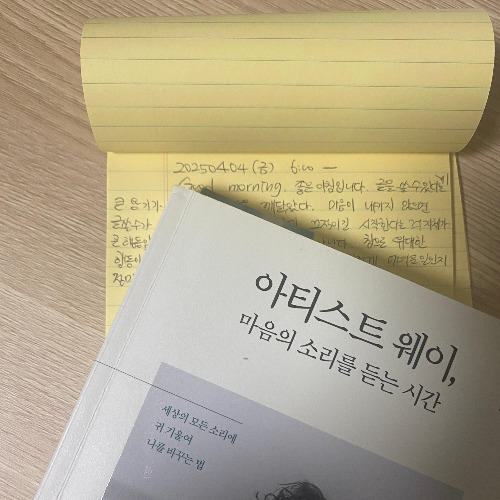 20250404 (금) 6:00 —
Good morning. 좋은 아침입니다. 글을 쓸 수 있다는게
큰 용기가 깨달았다. 마음이 내키지 않으면
글쓸수가 시작한다는 것 자체가
큰 니다. 참으로 위대한
행동이
아티스트 웨이,
마음의 소리를 듣는 시간
세상의 모든 소리에
귀 기울여
나를 바꾸는 법